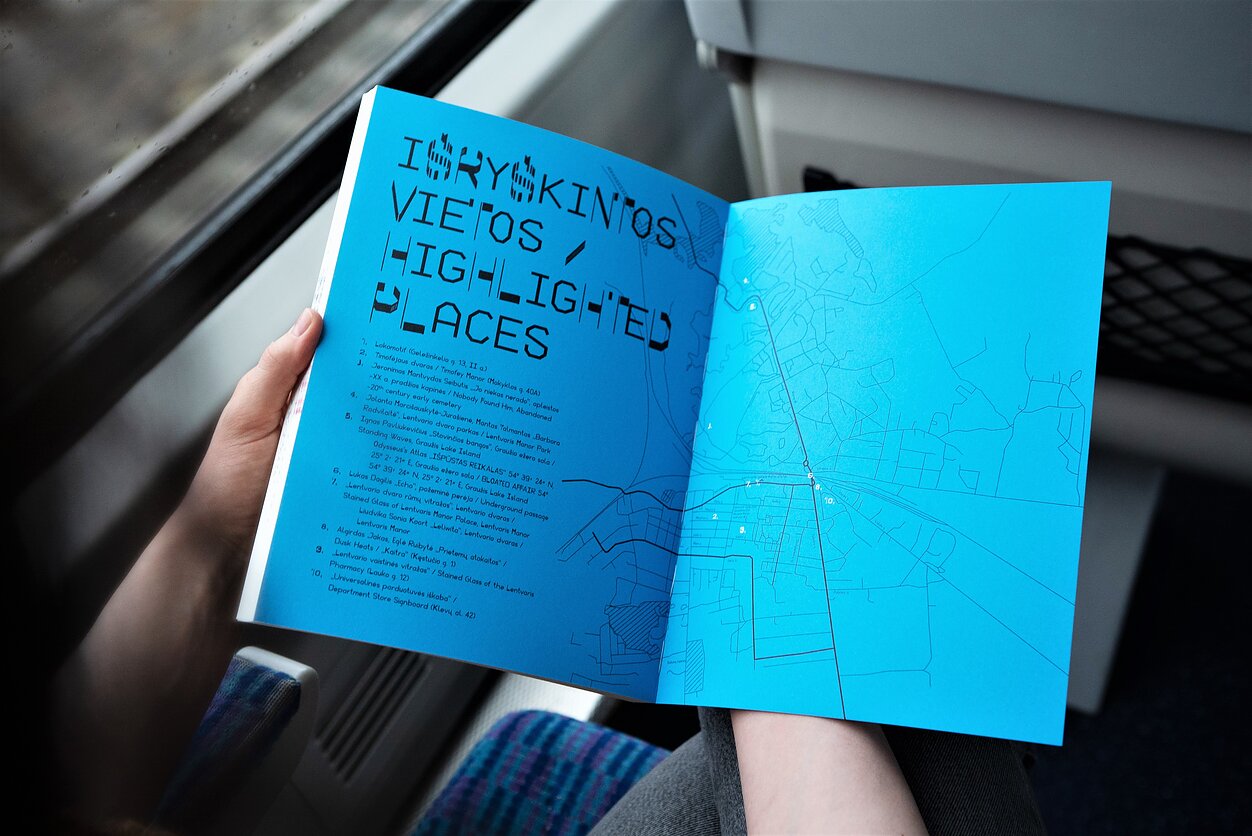 IŠRYŠKINTOS
VIETOS /
HIGHLIGHTED
PLACES
1. Lokomotif (Geležinkelio g. 13, II a.)
2. Timofėjaus dvaras / Timofey Manor (Mokyklos g. 40A)
3. Jeronimas Mantvydas Seibutis „Jo niekas nerado“, apleistos
~XX a. pradžios kapinės / Nobody Found Him, Abandoned
~20th century early cemetery
4. Jolanta Marcišauskytė-Jurašienė, Mantas Talmantas „Barbora
Radvilaitė“, Lentvario dvaro parkas / Lentvaris Manor Park
5. Ignas Pavliukevičius „Stovinčios bangos“, Graužio ežero sala /
Standing Waves, Graužis Lake Island
Odysseus's Atlas „IŠPŪSTAS REIKALAS“ 54° 39' 24" N,
25° 2' 21" E, Graužio ežero sala / BLOATED AFFAIR 54°
54° 39' 24" N, 25° 2' 21" E, Graužis Lake Island
6. Lukas Dagilis „Echo“, požeminė perėja / Underground passage
7. „Lentvario dvaro rūmų vitražas“, Lentvario dvaras /
Stained Glass of Lentvaris Manor Palace, Lentvaris Manor
Liudvika Sonia Koort „Leliwita“, Lentvario dvaras /
Lentvaris Manor
8. Algirdas Jakas, Eglė Ruibytė „Prietemų atokaitos“ /
Dusk Heats / „Kaitra“ (Kęstučio g. 1)
9. „Lentvario vaistinės vitražas“ / Stained Glass of the Lentvaris
Pharmacy (Lauko g. 12)
10. „Universalinės parduotuvės iškaba“ /
Department Store Signboard (Klevų al. 42)